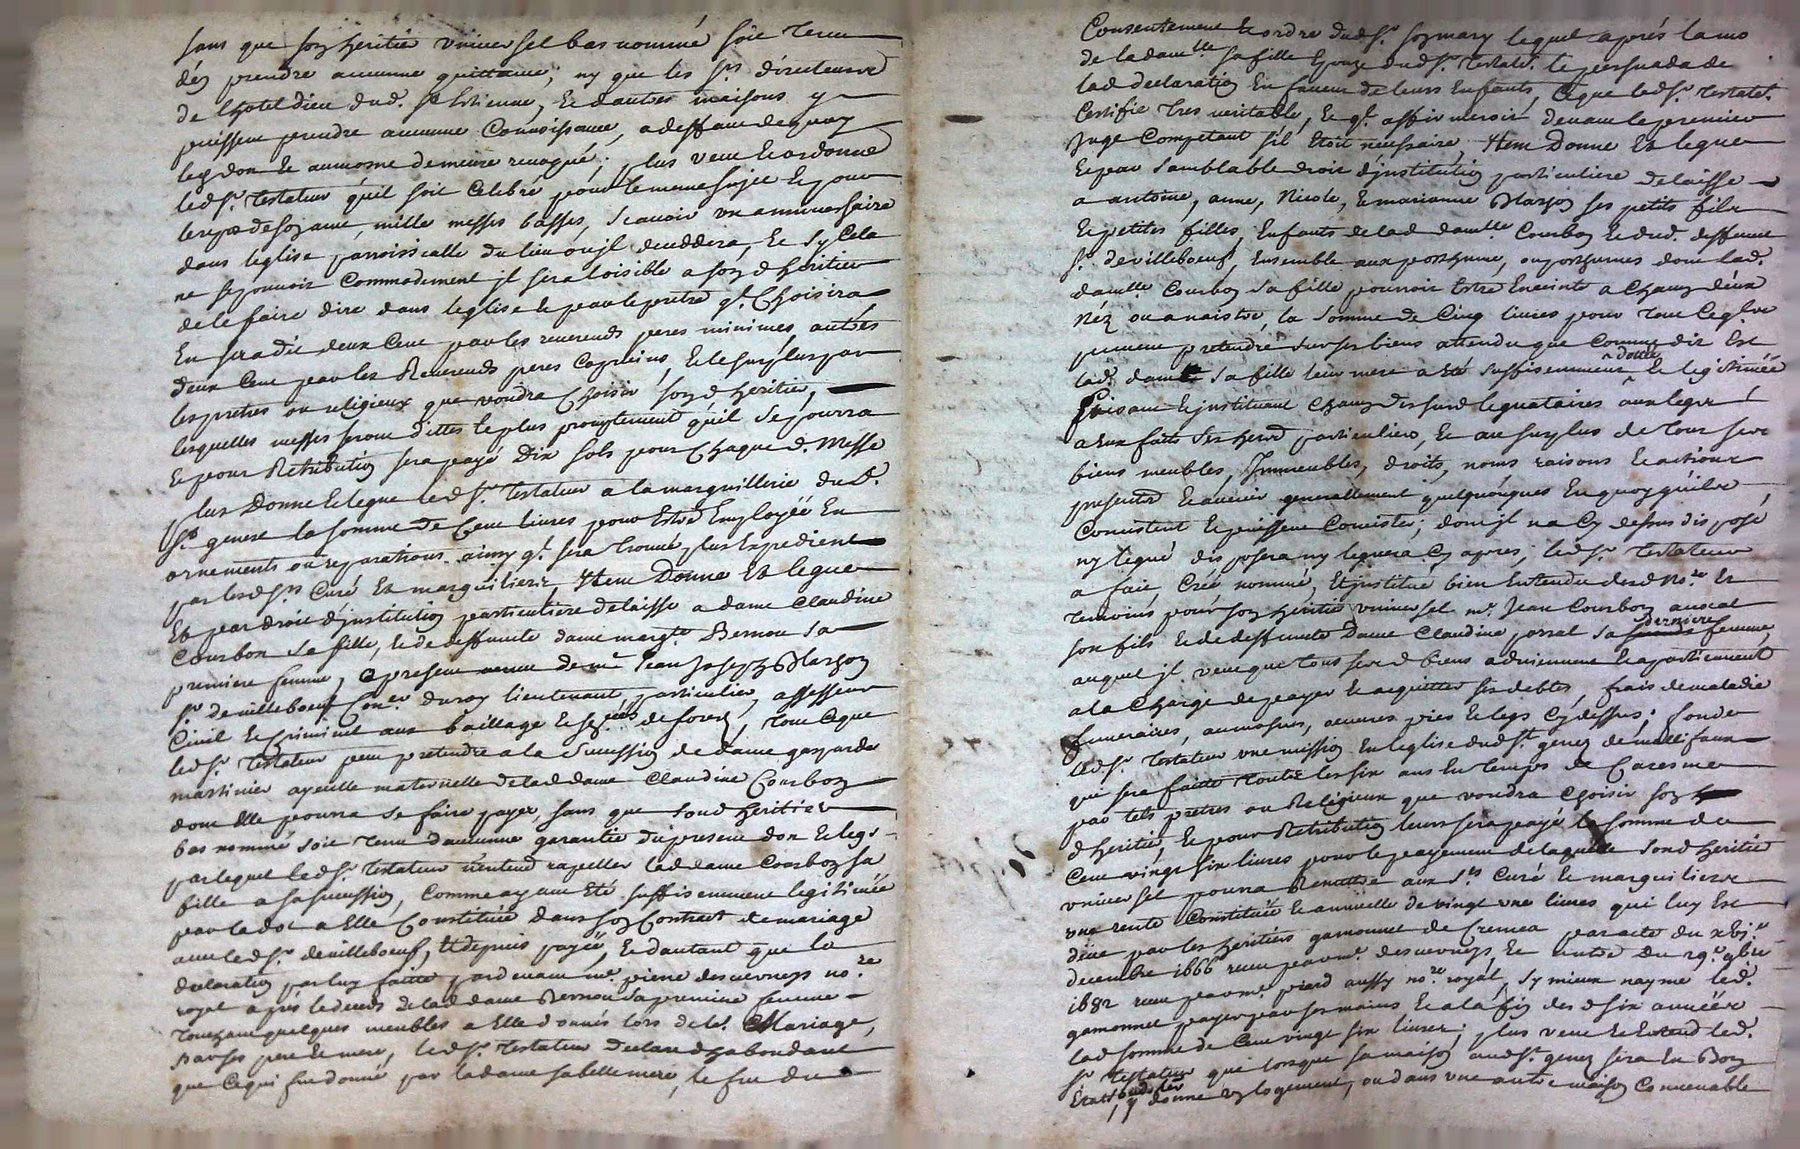 sans que son heritier universel bas nommé soit tenu
d'en prendre aucunne quittance, ny que les srs directeurs
de l'hotel dieu dud. st Estienne, et d'autres maisons y
puissent prendre aucunne Connoissance, a deffaut de quoy
legs don et aumosne demeure revoqué. plus veut et ordonne
led sr. testateur qu'il soit Celebré pour le mesme sujet et pour
le repos de son ame, mille messes basses, scavoir un anniversaire
dans l'eglise parroissialle du lieu ou jl deceddera, et sy Cela
ne se pouvoit Commodement jl sera loisible a son d heritier
de le faire dire dans l'eglise et par le pretre ql. Choisira,
En sera dit deux Cent par les reverends peres minimes, autres
deux Cent par les Reverends peres Capucins, et le surplus par
les pretres ou religieux que voudra Choisir son d heritier,
lesquelles messes seront dittes le plus promptement qu'il se pourra
et pour Retribution sera payé Dix sols pour Chaque d. Messe
plus Donne et legue led sr. testateur a la marguillerie du d.
st genest la somme de Cent livres pour Estre Employée En
ornements ou reparations ainsy ql. sera trouvé plus Expedient
par lesd srs Curé et marguilliers, Item Donne et legue
Et par droit d'jnstitution particuliere delaisse a dame Claudine
Courbon sa fille, et de deffunte dame margte Bernou sa
premiere femme, a present de mr. Jean Joseph Blazon
sr. de villeboeuf Coner. du roy lieutenant particulier, assesseur
Civil et Criminel aux baillage et de forez, tout Ceque
led sr. testateur peut pretendre a la succession de dame gasparde
martinier ayeulle maternelle de lad dame Claudine Courbon
dont Elle pourra se faire payer, sans que sond heritier
bas nommé soit tenu d'aucunne garantie du present don et legs
par lequel led sr. testateur n'entend rapeller lad dame Courbon sa
fille a sa succession, Comme ayant Eté suffisemment legitimée
par la dot a Elle Constituée dans son Contract de mariage
avec led sr. de villeboeuf, et depuis payée, et d'autant que la
declaration par luy faitte pardevant me. pierre desverneys nore
royal après le deceds de lad dame Bernou sa premiere femme
touchant quelques meubles a Elle donnés lors de le. Mariage,
par ses pere et mere, led sr. testateur declare d'habondant
que Cequi fut donné par lad dame sa belle mere, le fut du
Consentement et ordre dud sr. son mary lequel après la mo
de la damlle sa fille Epouze dud sr. testatr. le persuada de
lad declaration En faveur de leurs Enfants, Ceque led sr. testatr.
Certifie tres veritable, et ql. affirmeroit devant le premier
Juge Competant s'il Etoit necessaire, Item Donne et legue
et par semblable droit d'jnstitution particuliere delaisse
a antoine, anne, Nicole, et marianne Blazon ses petits fils
et petites filles, Enfants de lad damlle Courbon et dud. deffunt
sr. de villeboeuf, Ensemble aux posthume, ou posthumes dont lad.
damlle Courbon sa fille pourroit Estre Enceinte a Chaqun d'eux
nez ou a naistre, la somme de Cinq livres pour tout Ceqls.
peuvent pretendre sur ses biens attendu que Comme dit Est
lad. dame sa fille leur mere a Eté suffisemment dottée et legitimée
Faisant et jnstituant Chaqun desusd leguataires aux legs
a Eux faits ses hers particuliers, et au surplus de tous ses
biens meubles, Jmmeubles, droits, noms raisons et actions
presents et avenir generallement quelquonques En quoy qu'ils
Consistent et puissent Consister; dont jl n'a Cy dessus disposé
ny legué disposera ny leguera Cy apres, led sr. testateur
a fait, Créé nommé, et jnstitué bien Entendu desd nore. et
temoins pour son heritier universel mr. Jean Courbon avocat
son fils et de deffunte Dame Claudine jossal sa derniere femme,
auquel jl veut que tous sesd biens adviennent et apartiennent
a la Charge de payer et acquitter ses debtes, frais de maladie
funeraires, aumosnes, oeuvres pies et legs Cy dessus; fonde
led sr. testateur une mission En l'eglise dud st. genez de mallifaux
qui sera faitte toutes les six ans En temps de Caresme
par tels pretres ou Religieux que voudra Choisir son
d heritier, et pour Retribution leur sera payé la somme de
Cent vingt six livres pour le payement de laquelle sond heritier
universel pourra Remettre aux srs Curé et marguilliers
une rente Constituée et annuelle de vingt une livres qui luy Est
düe par les heritiers gamonnet de Cremea par acte du xbje
decembre 1666 receu par me. desverneys, et autre du 29e. 9bre
1682 receu par me. piard aussy nore royal, sy mieux nayme led.
gamonnet payer par ses mains et a la fin des d six années
lad somme de Cent vingt six livres; plus veut et Entend led.
sr. testateur que lorsque sa maison aud st. genez sera En Bon
Etat y donne logement, ou dans une autre maison Convenable